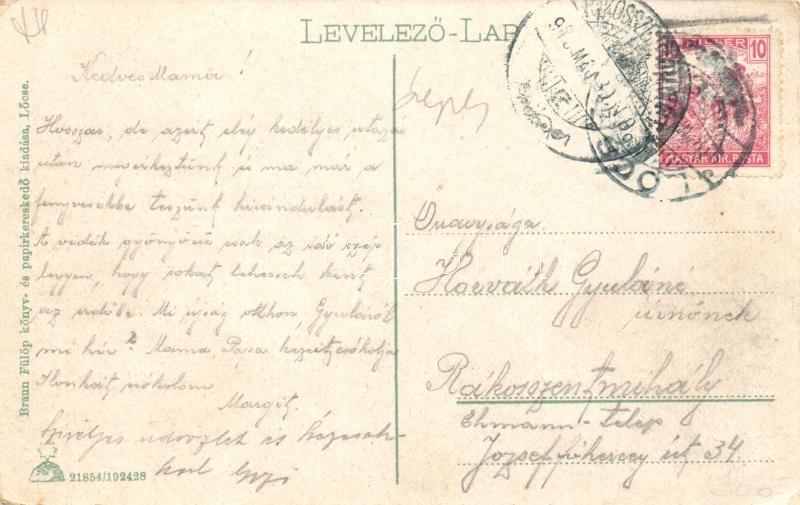 LEVELEZŐ-LAP
Kedves Mama!
Hosszas, de azért elég kedélyes utazás
után megérkeztünk és ma már a
fenyvesekbe teszünk kirándulást.
A vidék gyönyörű csak az idő szép
legyen, hogy sokat lehessek kint
az erdőbe. Mi újság otthon, Gyuláról
mi hír? Mama, Papa kezeit csókolja
Ilonkáit csókolom
Margit.
Szívélyes üdvözlet és kézcsók-
Braun Fülöp könyv- és papirkereskedő kiadása, Lőcse.
21854/192428
10
MAGYAR KIR. POSTA
LŐCSE
Őnagysága
Horváth Gyuláné
úrnőnek
Rákosszentmihály
Ehmann-telep
József főherceg út 34.